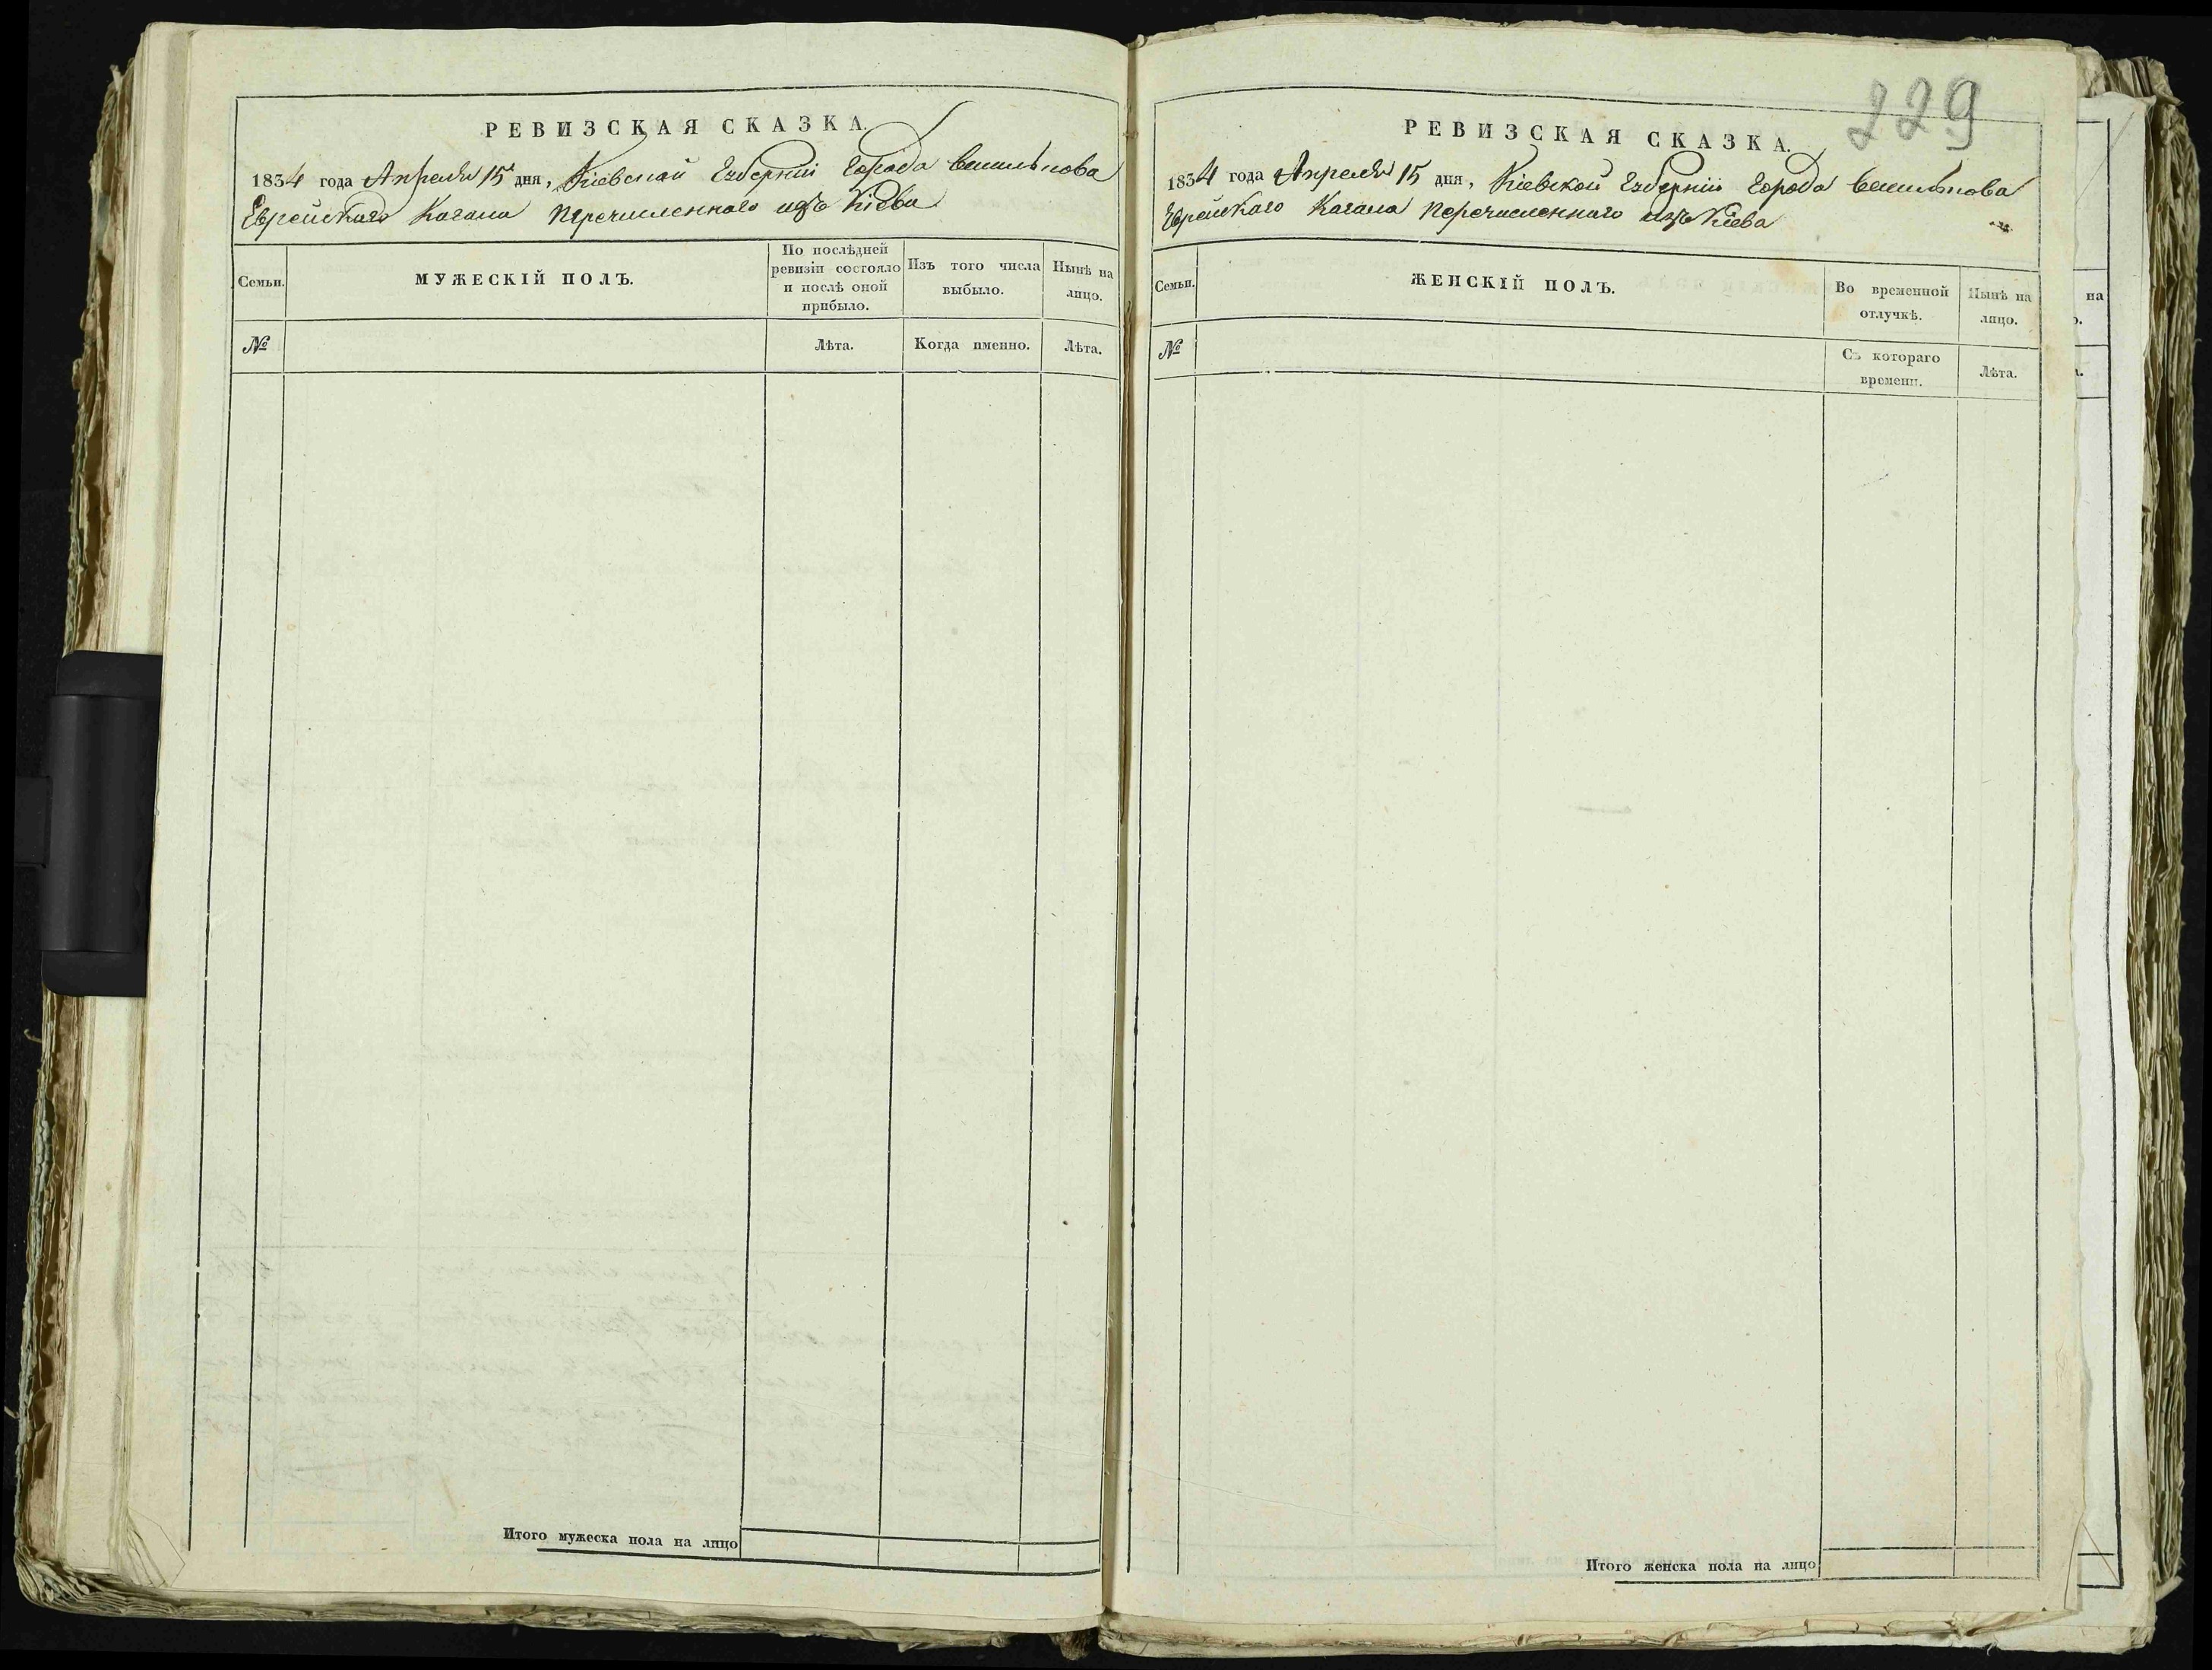 РЕВИЗСКАЯ СКАЗКА.
1834 года Апреля 15 дня, Кіевской Губерніи Города Василькова
Еврейскаго Кагала перечисленнаго изъ Кіева
Семьи.
МУЖЕСКІЙ ПОЛЪ.
По послѣдней
ревизіи состояло
и послѣ оной
прибыло.
Изъ того числа
выбыло.
Нынѣ на
лицо.
№
Лѣта.
Когда именно.
Лѣта.
Итого мужеска пола на лицо
229
РЕВИЗСКАЯ СКАЗКА.
1834 года Апреля 15 дня, Кіевской Губерніи Города Василькова
Еврейскаго Кагала перечисленнаго изъ Кіева
Семьи.
ЖЕНСКІЙ ПОЛЪ.
Во временной
отлучкѣ.
Нынѣ на
лицо.
№
Съ котораго
времени.
Лѣта.
Итого женска пола на лицо
на